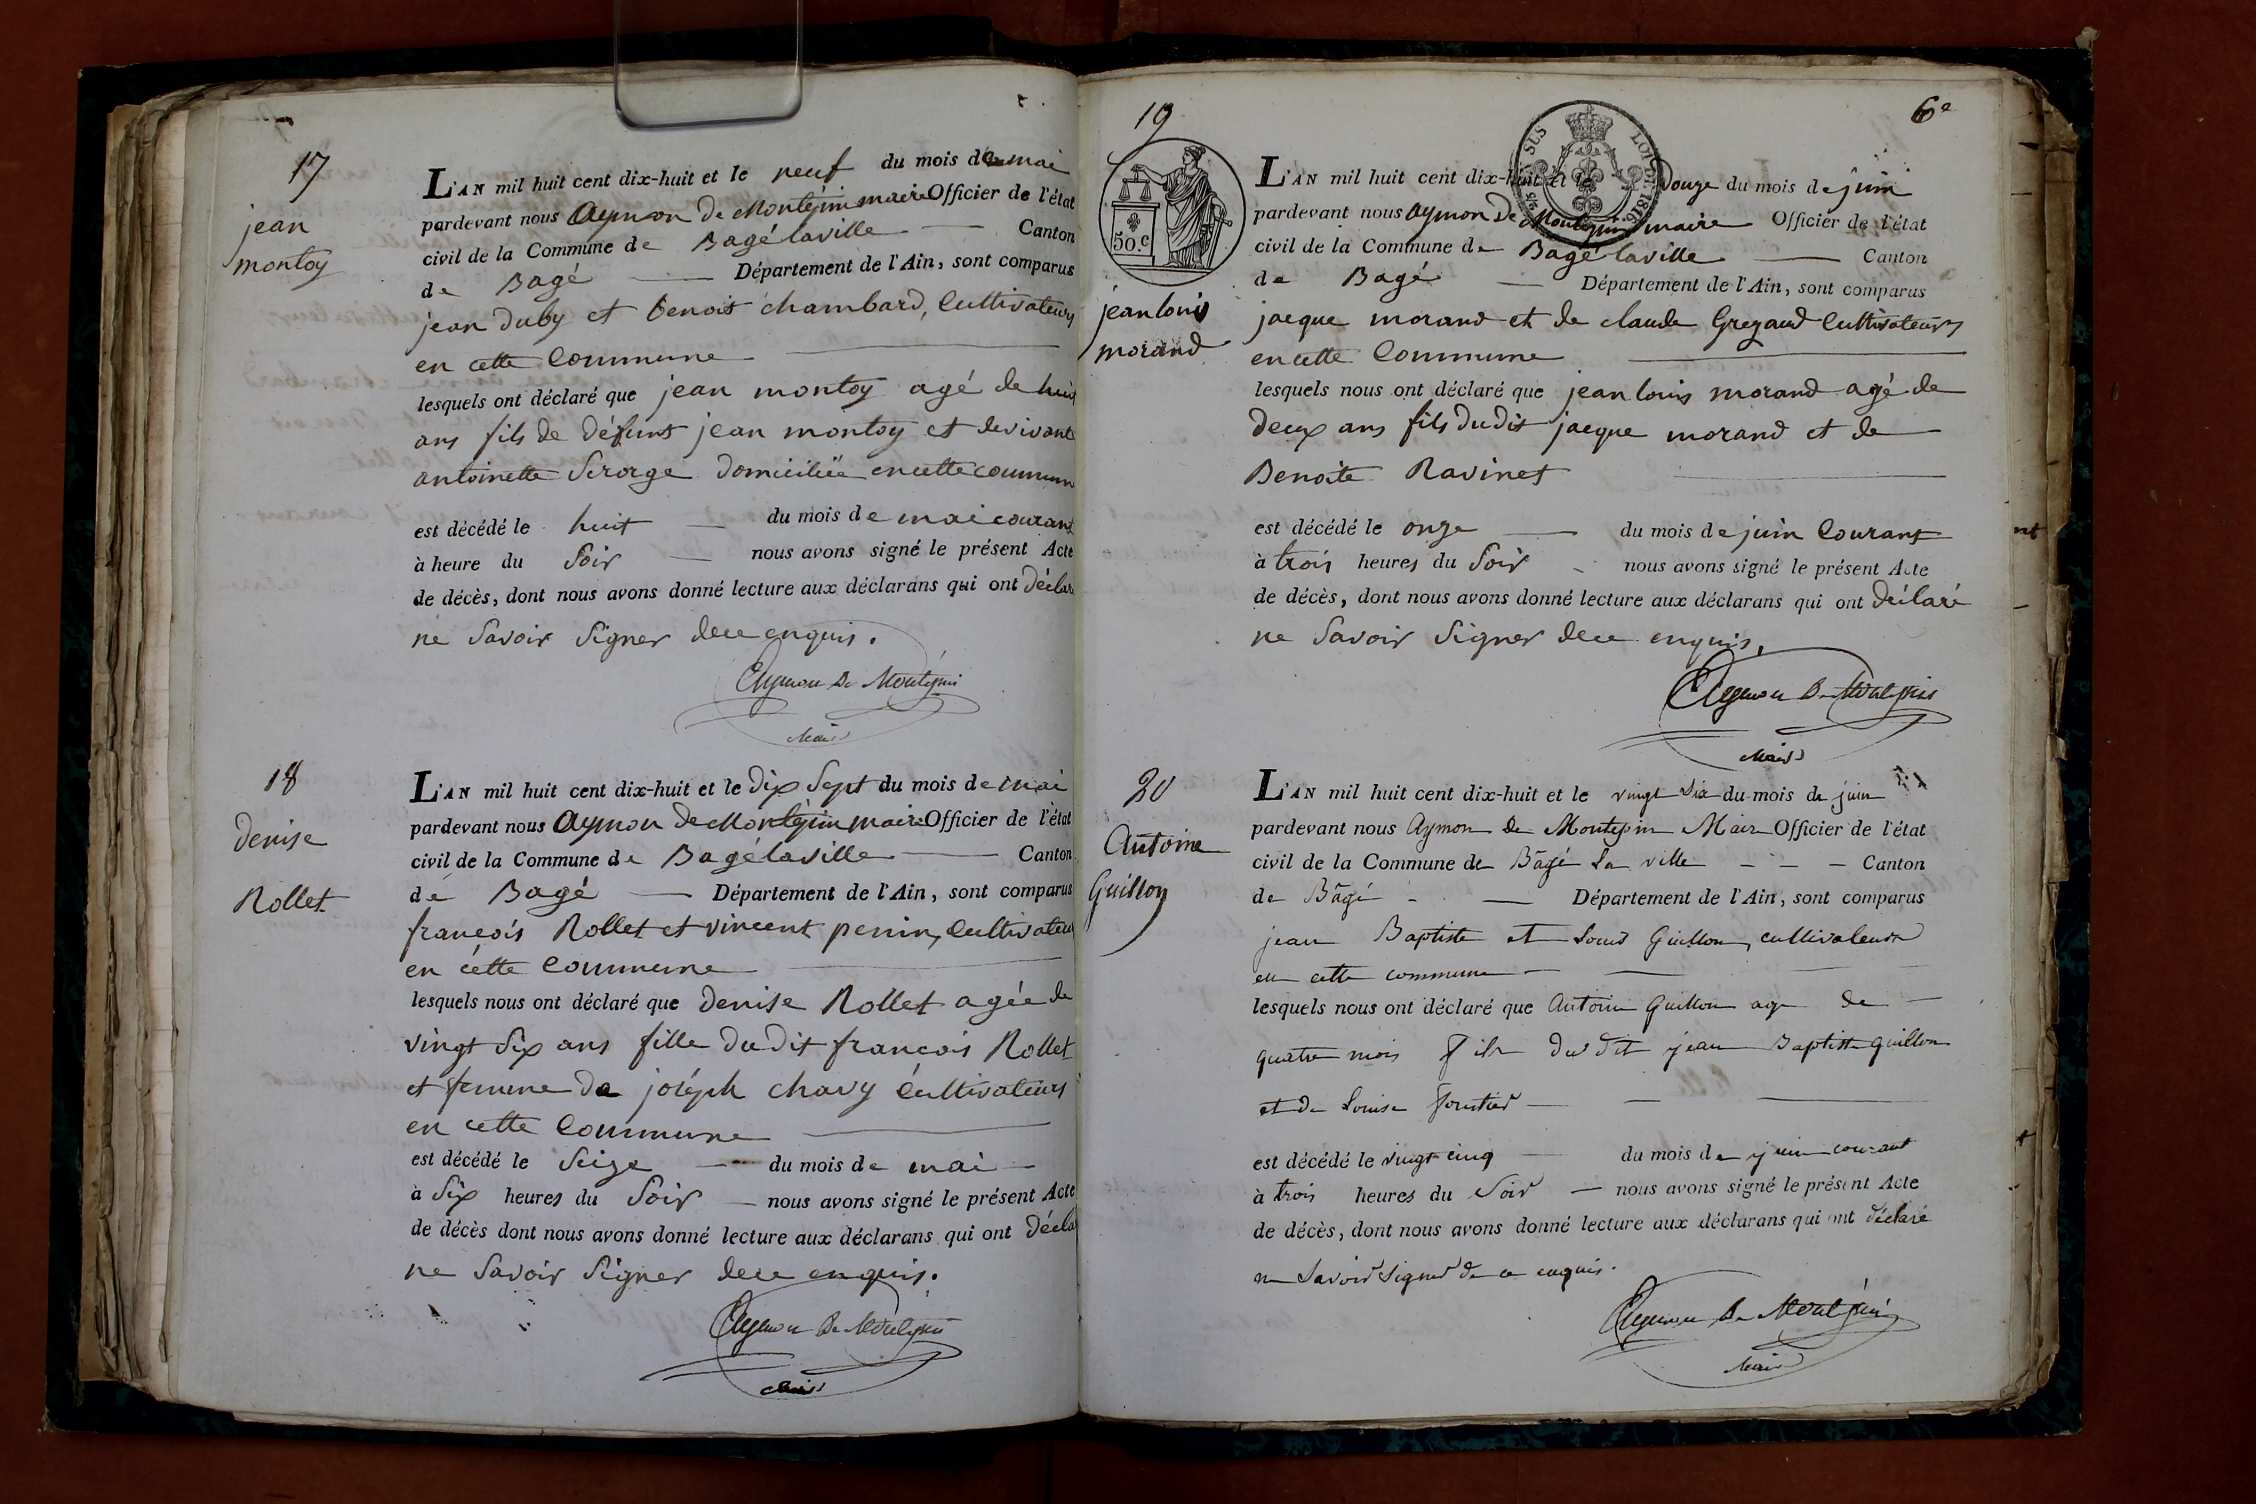 17
jean
montoy
L'AN mil huit cent dix-huit et le neuf du mois de mai
pardevant nous Aymon De Montépin maire Officier de l'état
civil de la Commune de Bagé laville Canton
de Bagé Département de l'Ain, sont comparus
jean duby et benoit chambard, Cultivateurs
en cette Commune
lesquels ont déclaré que jean montoy agé de huit
ans fils de défunt jean montoy et de vivante
antoinette Serorge domiciliëe en cette commune
est décédé le huit du mois de mai courant
à heure du Soir nous avons signé le présent Acte
de décès, dont nous avons donné lecture aux déclarans qui ont déclaré
ne Savoir Signer dece enquis.
Aymon De Montépin
Maire
18
denise
Rollet
L'AN mil huit cent dix-huit et le Dix Sept du mois de mai
pardevant nous Aymon De Montépin maire Officier de l'état
civil de la Commune de Bagé laville Canton
de Bagé Département de l'Ain, sont comparus
francois Rollet et vincent penin, Cultivateurs
en cétte Commune
lesquels nous ont déclaré que denise Rollet agée de
vingt Six ans fille Du dit francois Rollet
et femme de joseph chavy Cultivateurs
en cette Commune
est décédé le Seize du mois de mai
à Six heures du Soir nous avons signé le présent Acte
de décès dont nous avons donné lecture aux déclarans qui ont décla
ne Savoir Signer dece enquis.
Aymon De Montépin
Maire
19
6e
50.c
LOI DE 1816.
jean louis
morand
L'AN mil huit cent dix-huit et le Douze du mois de juin
pardevant nous Aymon De Montépin maire Officier de l'état
civil de la Commune de Bagé laville Canton
de Bagé Département de l'Ain, sont comparus
jacque morand et de claude Gregaud Cultivateurs
en cette Commune
lesquels nous ont déclaré que jean louis morand agé de
Deux ans fils Du dit jacque morand et de
Benoite Ravinet
est décédé le onze du mois de juin Courant
à trois heures du Soir nous avons signé le présent Acte
de décès, dont nous avons donné lecture aux déclarans qui ont déclaré
ne Savoir Signer dece enquis,
Aymon De Montépin
Maire
20
Antoine
Guillon
L'AN mil huit cent dix-huit et le vingt Six du mois de juin
pardevant nous Aymon de Montepin Maire Officier de l'état
civil de la Commune de Bâgé La ville Canton
de Bâgé Département de l'Ain, sont comparus
jean Baptiste et Louis Guillon, cultivateurs
en cette commune
lesquels nous ont déclaré que Antoine Guillon age de
quatre mois fils du dit jean Baptiste guillon
et de Louise
est décédé le vingt cinq du mois de juin courant
à trois heures du Soir nous avons signé le présent Acte
de décès, dont nous avons donné lecture aux déclarans qui ont déclaré
ne Savoir Signer de ce enquis.
Aymon De Montépin
Maire